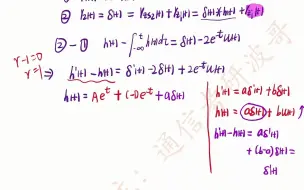 ② y₂(t)=δ(t)=y_{zs2}(t)+y_{zi}(t)=δ(t)*h(t)+y_{zi}(t)
②-① h(t)-∫_{-∞}^{t}h(τ)dτ=δ(t)-2e^{-t}u(t)
r-1=0
r=1 ⇒ h'(t)-h(t)=δ'(t)-2δ(t)+2e^{-t}u(t)
h(t)=Ae^{t}+(-1)e^{-t}+aδ(t)
h'(t)=aδ'(t)+bδ(t)
h(t)=aδ(t)+bu(t)↑
h'(t)-h(t)=aδ'(t)
+(b-a)δ(t)=
δ'(t)
通信考研波哥